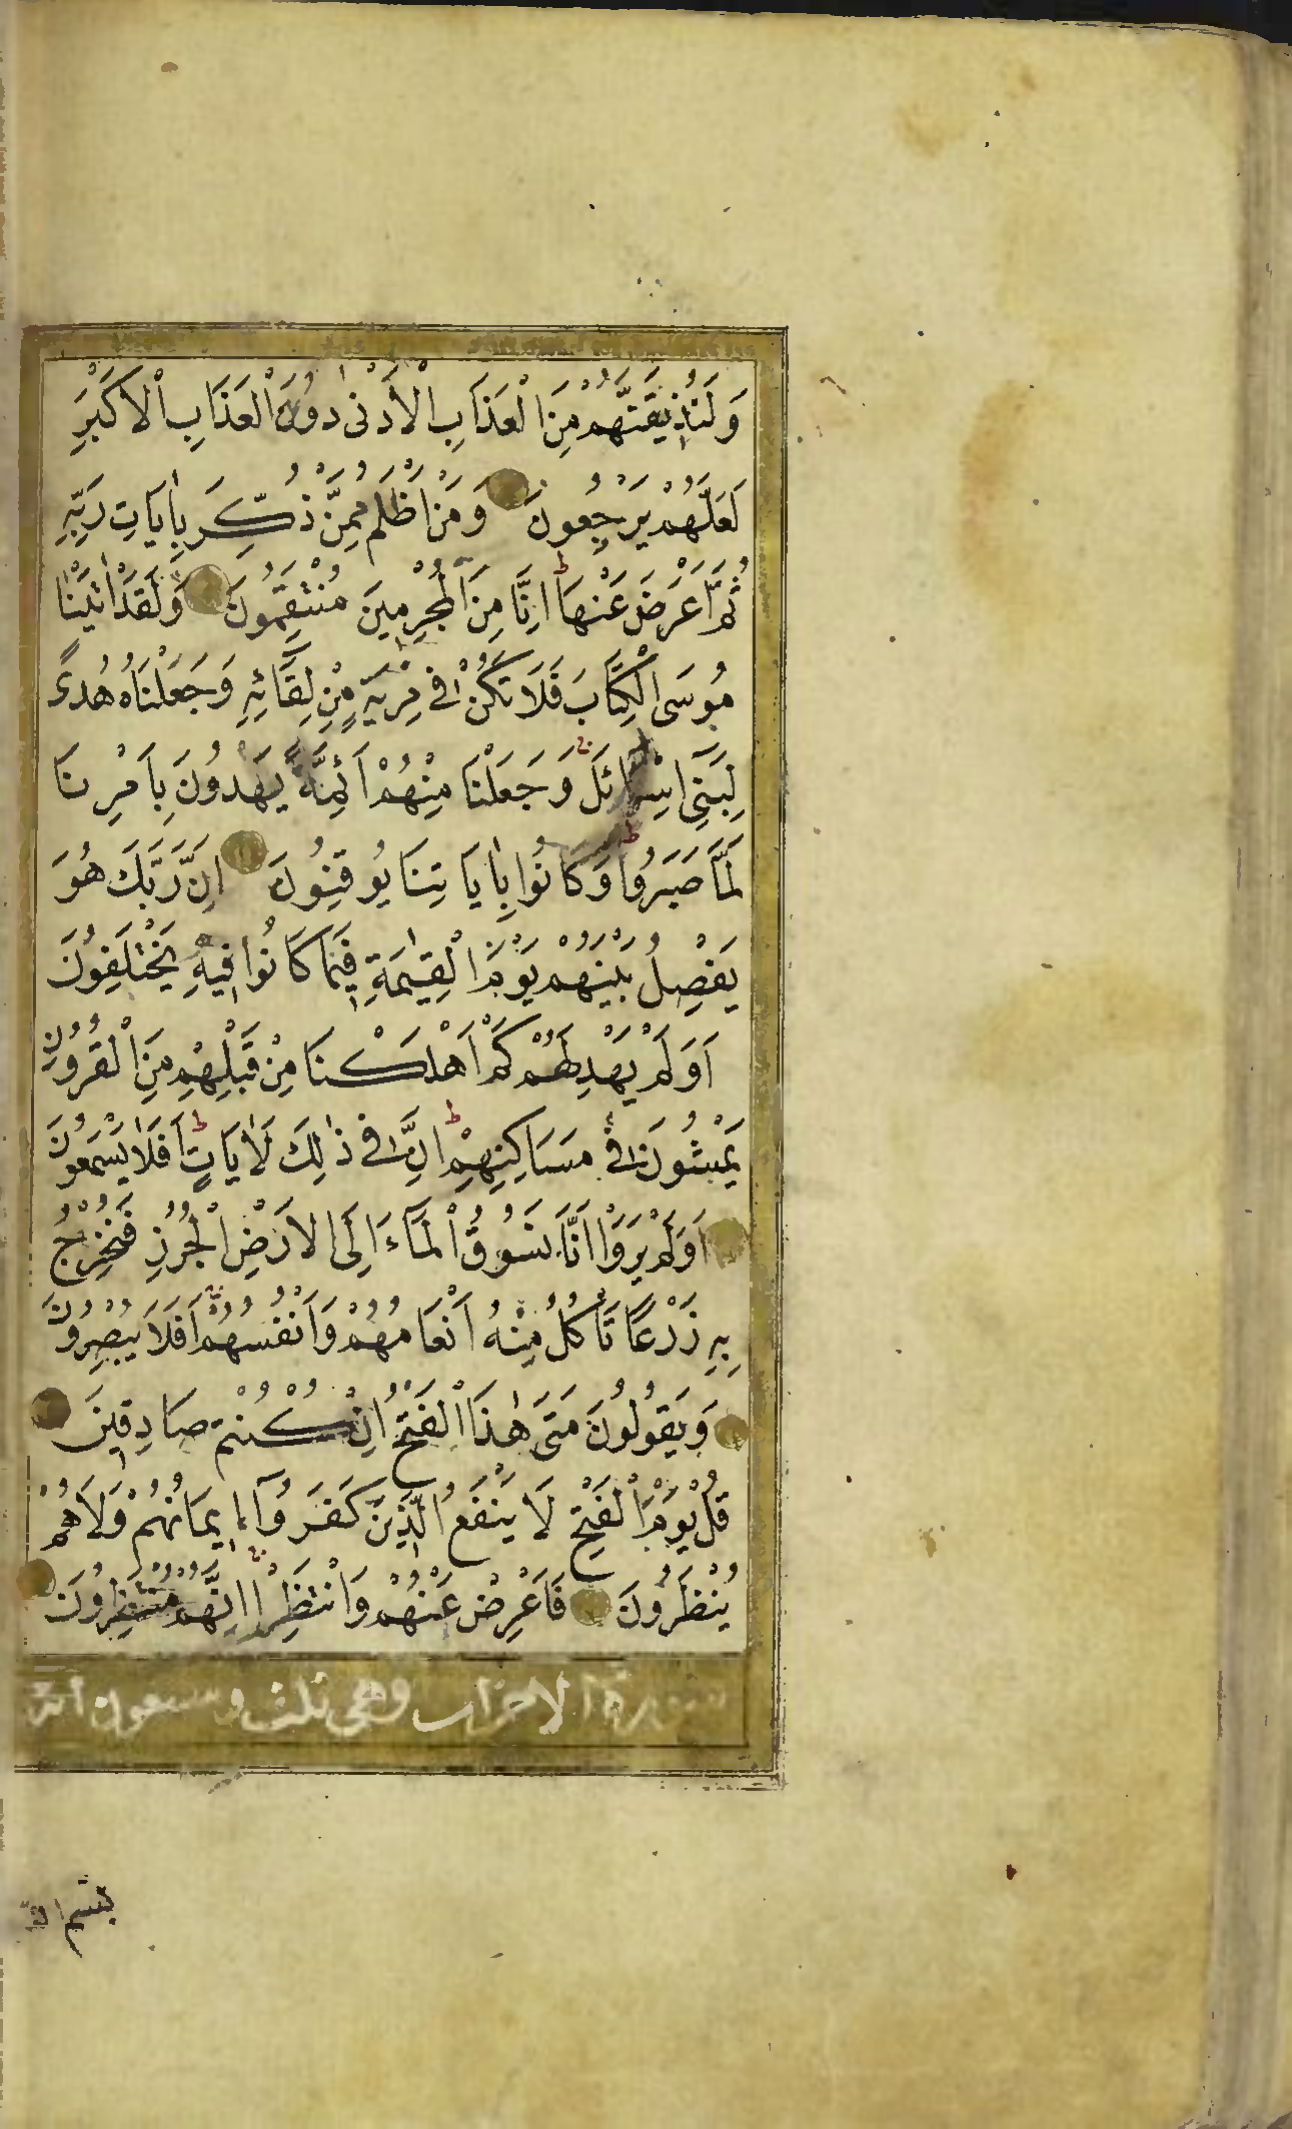 وَلَنُذِيقَنَّهُمْ مِنَ الْعَذَابِ الْأَدْنٰى دُونَ الْعَذَابِ الْأَكْبَرِ
لَعَلَّهُمْ يَرْجِعُونَ وَمَنْ اَظْلَمُ مِمَّنْ ذُكِّرَ بِاٰيَاتِ رَبِّهِ
ثُمَّ اَعْرَضَ عَنْهَا ط اِنَّا مِنَ الْمُجْرِمِينَ مُنْتَقِمُونَ وَلَقَدْ اٰتَيْنَا
مُوسَى الْكِتَابَ فَلَا تَكُنْ فِي مِرْيَةٍ مِنْ لِقَائِهِ وَجَعَلْنَاهُ هُدًى
لِبَنِي اِسْرَائِلَ وَجَعَلْنَا مِنْهُمْ اَئِمَّةً يَهْدُونَ بِاَمْرِنَا
لَمَّا صَبَرُوا ط وَكَانُوا بِاٰيَاتِنَا يُوقِنُونَ اِنَّ رَبَّكَ هُوَ
يَفْصِلُ بَيْنَهُمْ يَوْمَ الْقِيٰمَةِ فِيمَا كَانُوا فِيهِ يَخْتَلِفُونَ
اَوَلَمْ يَهْدِ لَهُمْ كَمْ اَهْلَكْنَا مِنْ قَبْلِهِمْ مِنَ الْقُرُونِ
يَمْشُونَ فِي مَسَاكِنِهِمْ ط اِنَّ فِي ذٰلِكَ لَاٰيَاتٍ ط اَفَلَا يَسْمَعُونَ
اَوَلَمْ يَرَوْا اَنَّا نَسُوقُ الْمَآءَ اِلَى الْاَرْضِ الْجُرُزِ فَنُخْرِجُ
بِهِ زَرْعًا تَأْكُلُ مِنْهُ اَنْعَامُهُمْ وَاَنْفُسُهُمْ اَفَلَا يُبْصِرُونَ
وَيَقُولُونَ مَتَى هٰذَا الْفَتْحُ اِنْ كُنْتُمْ صَادِقِينَ
قُلْ يَوْمَ الْفَتْحِ لَا يَنْفَعُ الَّذِينَ كَفَرُوآ اِيمَانُهُمْ وَلَا هُمْ
يُنْظَرُونَ فَاَعْرِضْ عَنْهُمْ وَانْتَظِرْ اِنَّهُمْ مُنْتَظِرُونَ
سورة الاحزاب وهي ثلث وسبعون آية
بسم الله